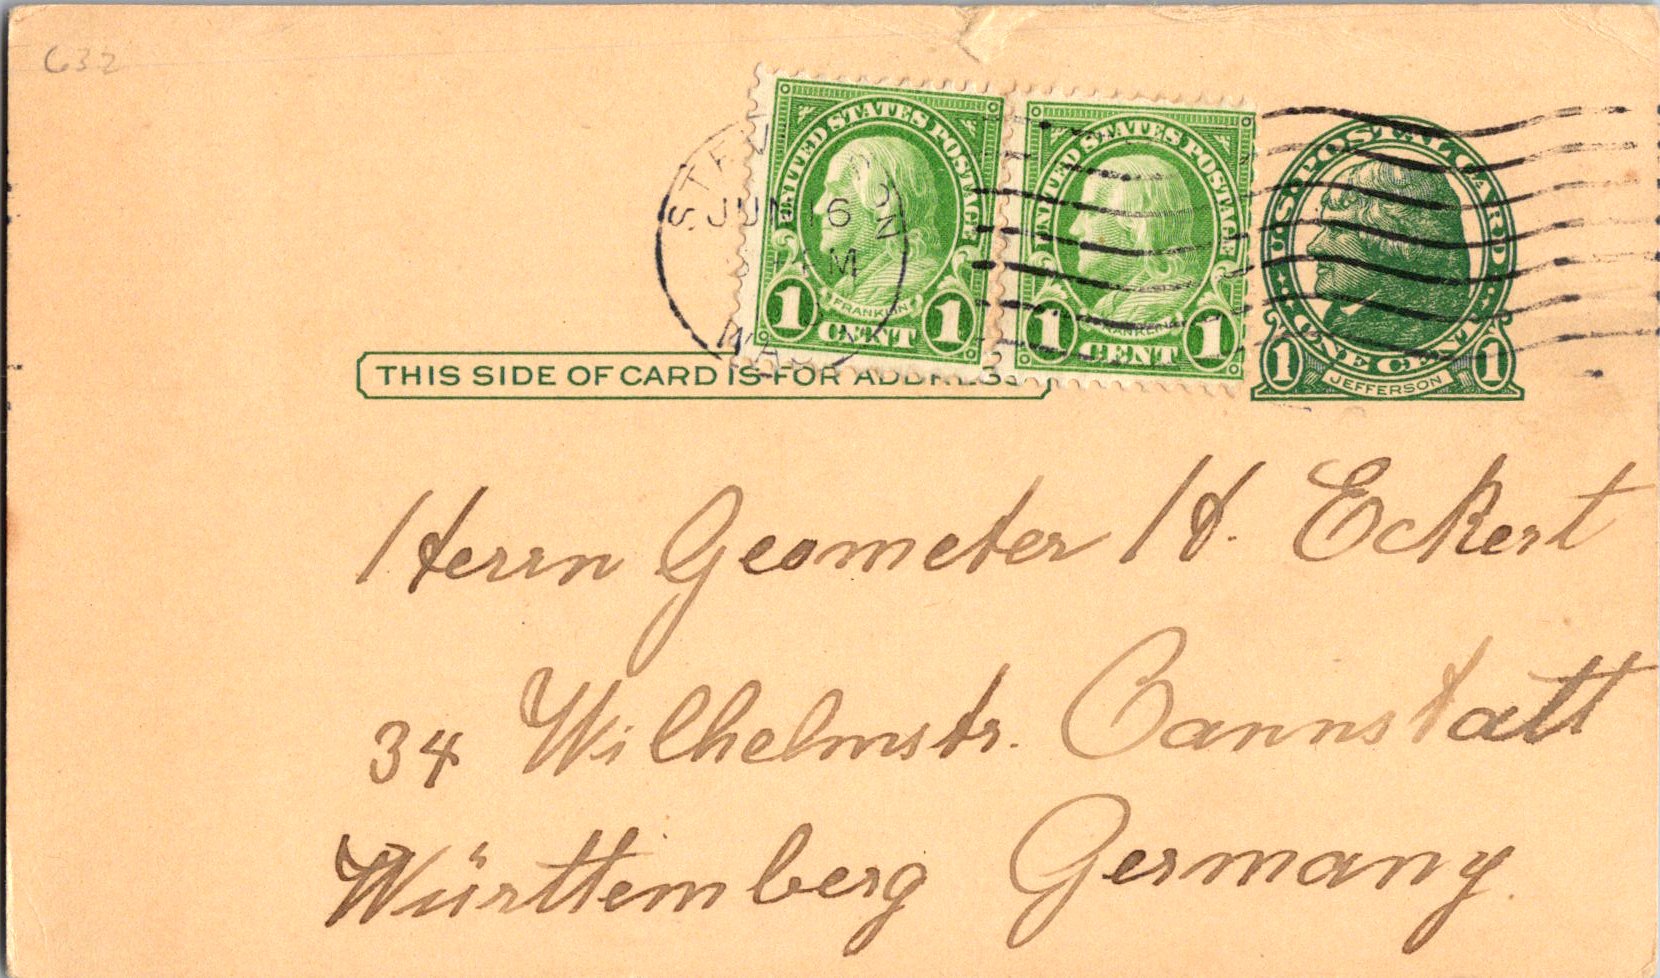 632
UNITED STATES POSTAGE
FRANKLIN
1 CENT 1
UNITED STATES POSTAGE
FRANKLIN
1 CENT 1
U.S. POSTAL CARD
ONE CENT
1 JEFFERSON 1
JUN 16
WASH
THIS SIDE OF CARD IS FOR ADDRESS
Herrn Geometer H. Eckert
34 Wilhelmstr. Cannstatt
Württemberg Germany.